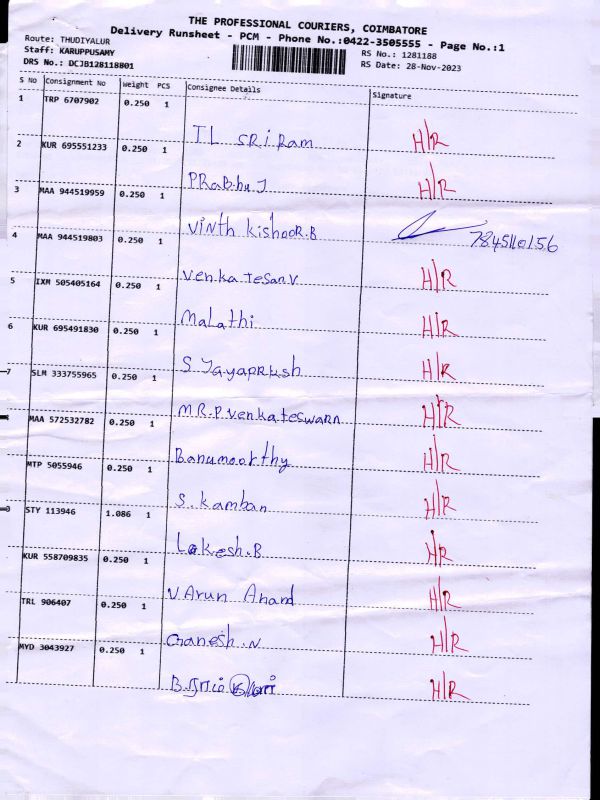 THE PROFESSIONAL COURIERS, COIMBATORE
Delivery Runsheet - PCM - Phone No.:0422-3505555 - Page No.:1
Route: THUDIYALUR
Staff: KARUPPUSAMY RS No.: 1281188
DRS No.: DCJB128118801 RS Date: 28-Nov-2023
S No Consignment No Weight PCS Consignee Details Signature
1 TRP 6707902 0.250 1
IL SRi Ram H/R
2 KUR 695551233 0.250 1
PRabhu J H/R
3 MAA 944519959 0.250 1
Vinth KishooR.B
4 MAA 944519803 0.250 1
Venka Tesan.V H/R
5 IXM 505405164 0.250 1
Malathi H/R
6 KUR 695491830 0.250 1
S Jayaprksh H/R
7 SLM 333755965 0.250 1
MR.P.Venkateswarn H/R
MAA 572532782 0.250 1
Banumoorthy H/R
MTP 5055946 0.250 1
S. kamban H/R
STY 113946 1.086 1
Lokesh.B H/R
KUR 558709835 0.250 1
V Arun Anand H/R
TRL 906407 0.250 1
Ganesh.N H/R
MYD 3043927 0.250 1
H/R